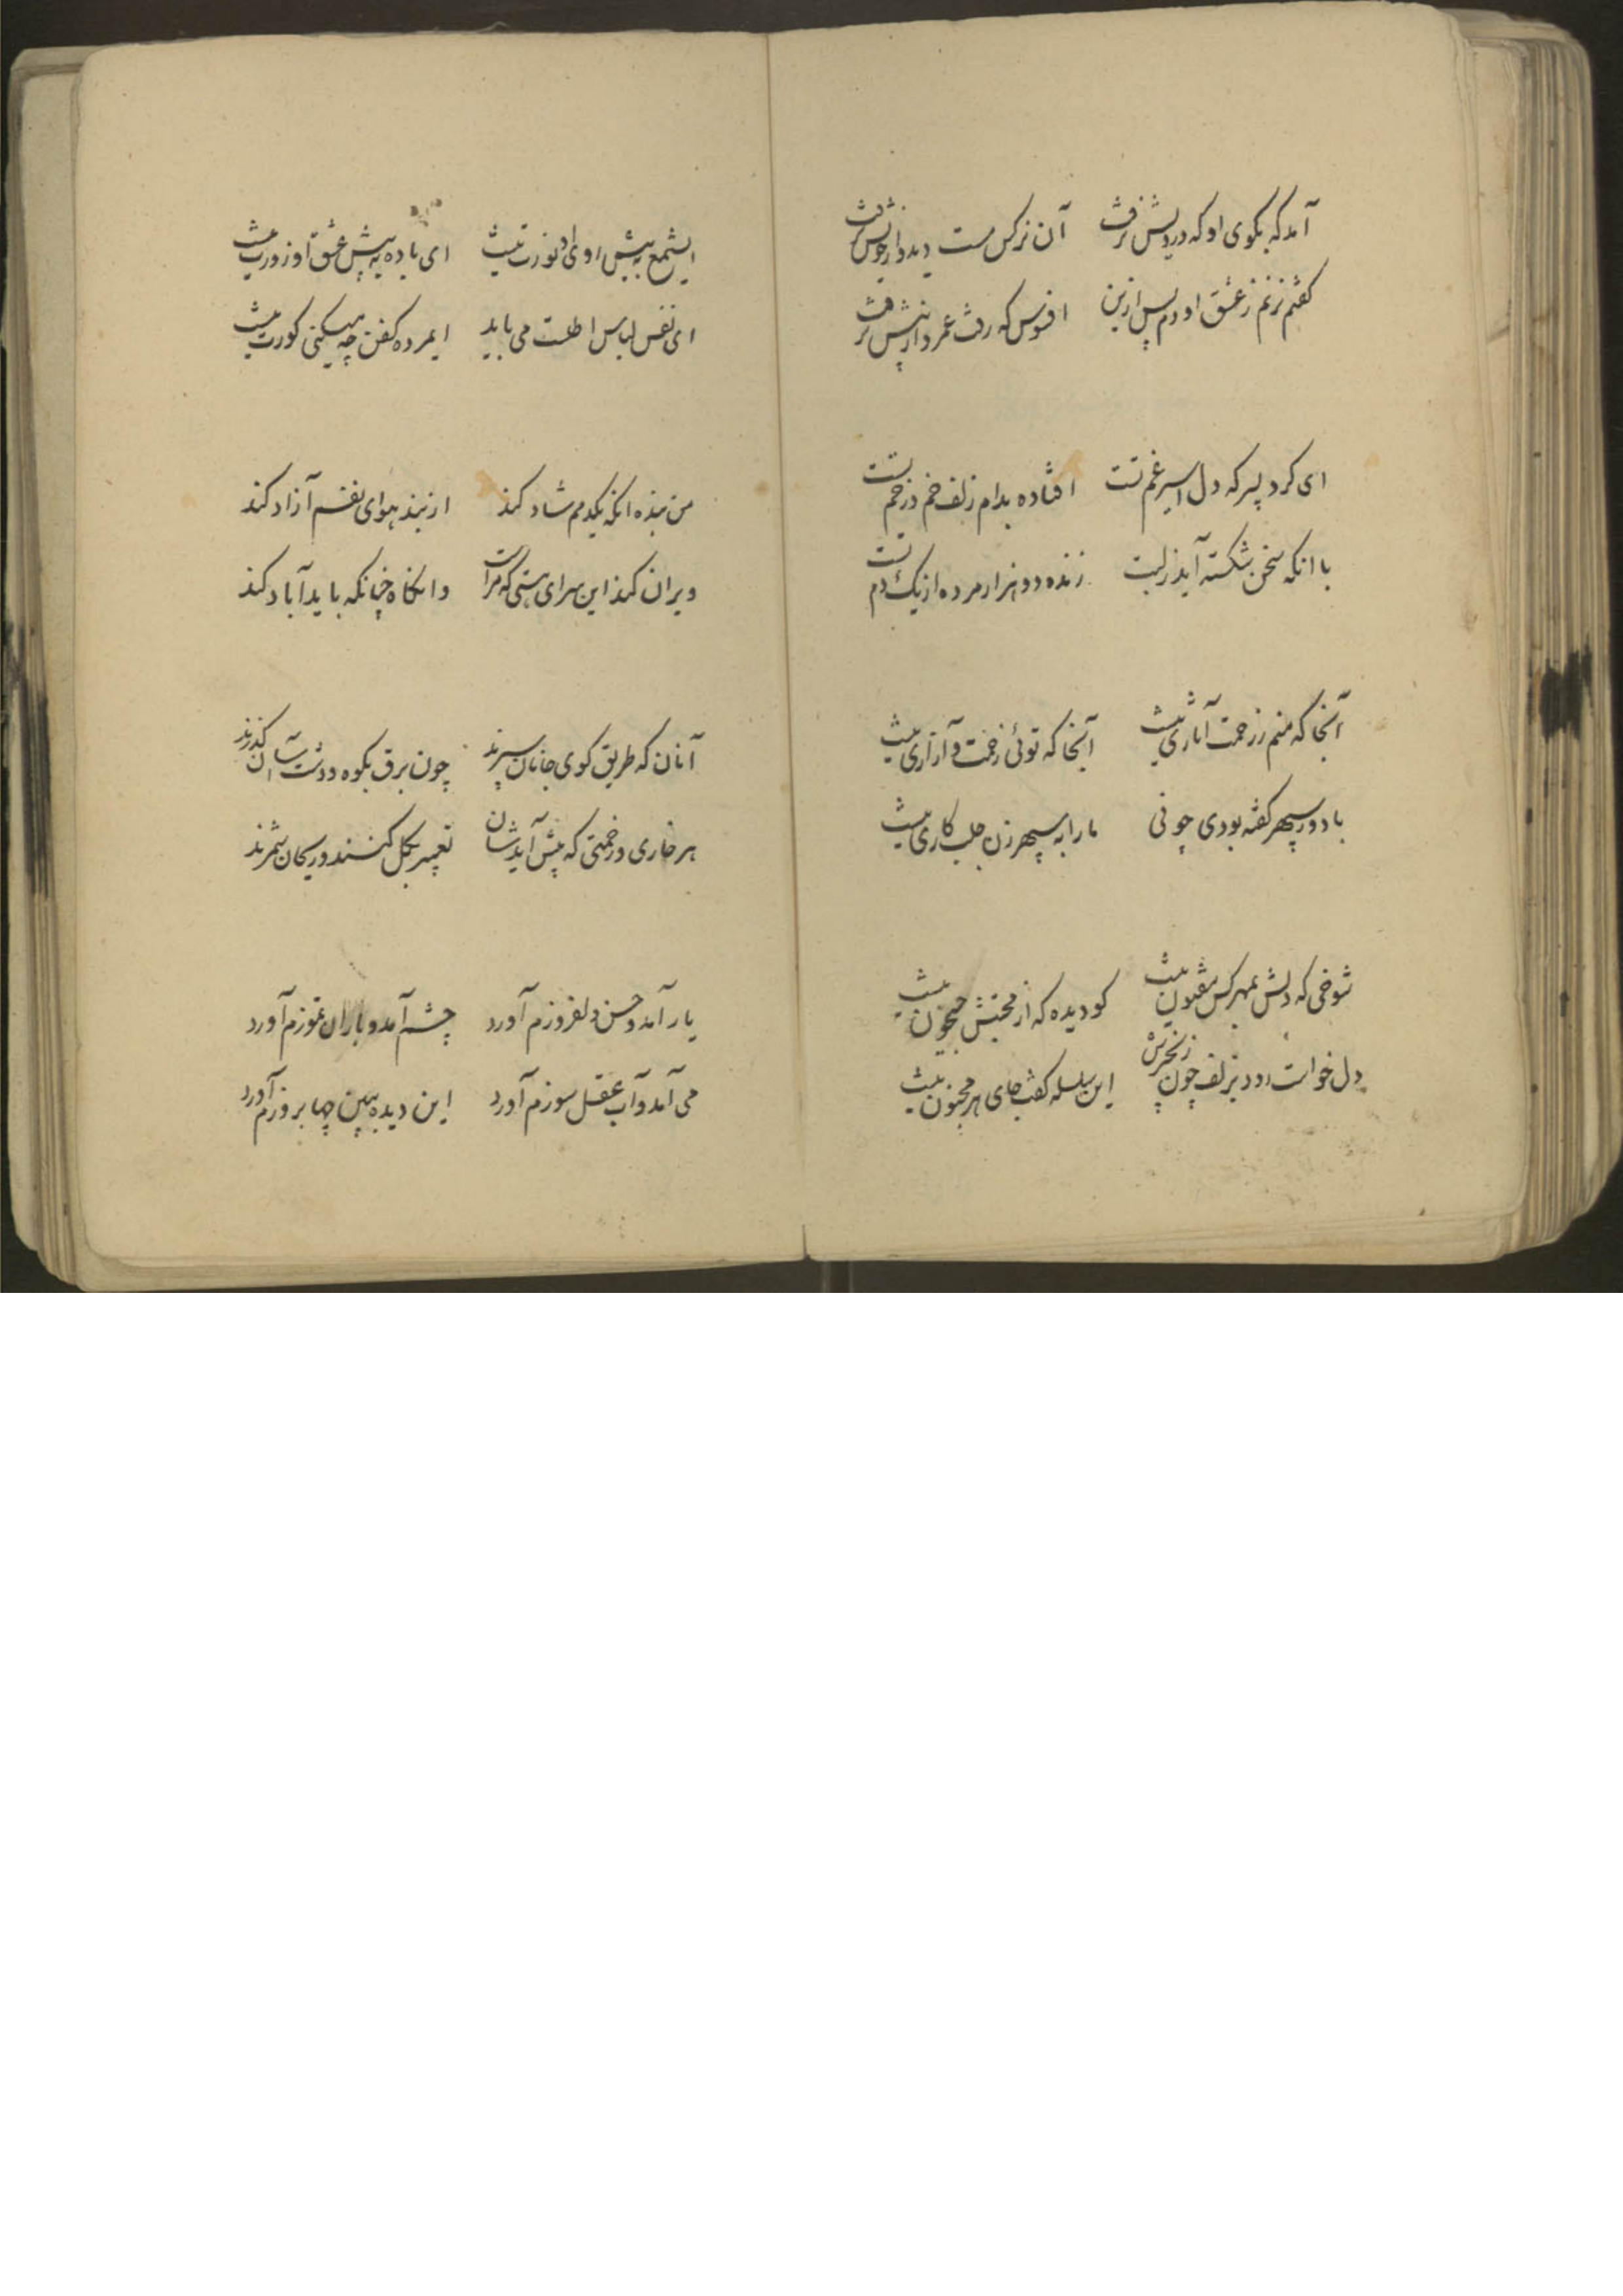 آمد که بکوی او که دردیش نرفت آن نرکس مست دید و از خویش نرفت
کفتم نزنم ز عشق او دم پس ازین افسوس که رفت عمر و از پیش نرفت
ای کرد پسر که دل اسیر غم تست افتاده بدام زلف خم در خم تست
با انکه سخن شکسته آید ز لبت زنده دو هزار مرده از یک دم تست
آنجا که منم ز زحمت آثاری نیست آنجا که توئی زحمت و آزاری نیست
با دور سپهر کفته بودی چونی ما را به سپهر زن جلب کاری نیست
شوخی که دلش بمهر کس مفتون نیست کو دیده که از محنتش جیحون نیست
دل خواست رود بزلف چون زنجیرش این سلسله کفت جای هر مجنون نیست
ایشمع به پیش او دی نورت نیست ای باده به پیش عشق او زورت نیست
ای نفس لباس اطلست می باید ایمرده کفن چه میکنی کورت نیست
من بنده انکه یکدمم شاد کند از بند هوای نفسم آزاد کند
ویران کند این سرای هستی که مراست وانکاه چنانکه باید آباد کند
آنان که طریق کوی جانان سپرند چون برق بکوه و دشت آسان کذرند
هر خاری و زخمتی که پیش آیدشان تعبیر بکل کنند و ریحان شمرند
یار آمد و حسن دلفروزم آورد چشم آمد و باران تموزم آورد
می آمد و آب عقل سوزم آورد این دیده ببین چها بروزم آورد